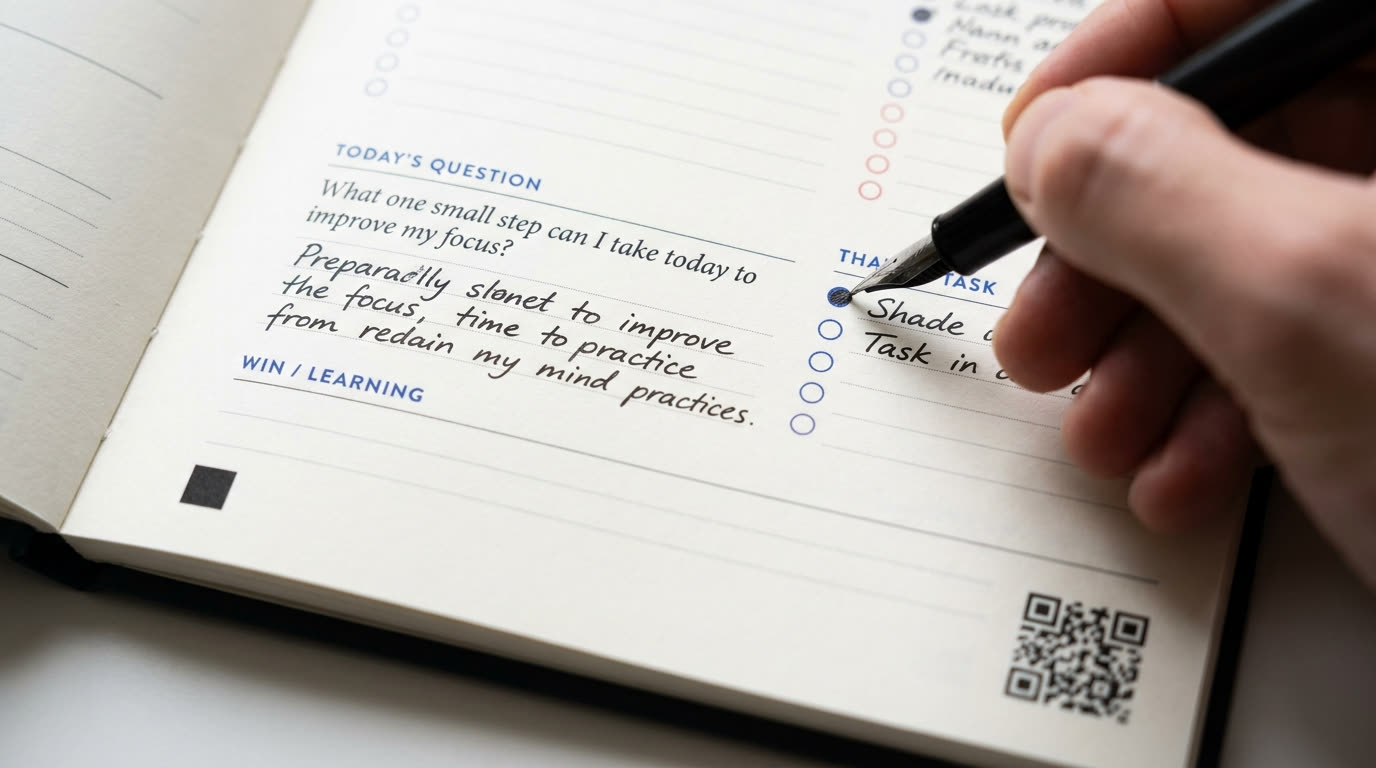 TODAY'S QUESTION
What one small step can I take today to
improve my focus?
Preparadlly slonet to improve
the focus, time to practice
from redain my mind practices.
WIN / LEARNING
Nann
Fratis
THA TASK
Shade
Task in